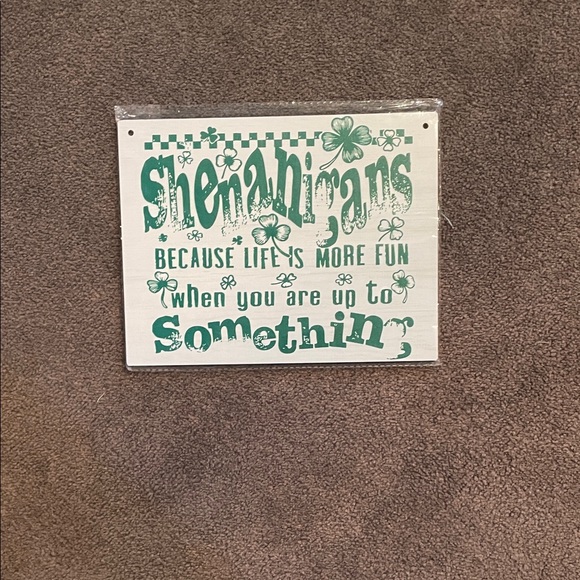 Shenanigans
BECAUSE LIFE IS MORE FUN
when you are up to
Something